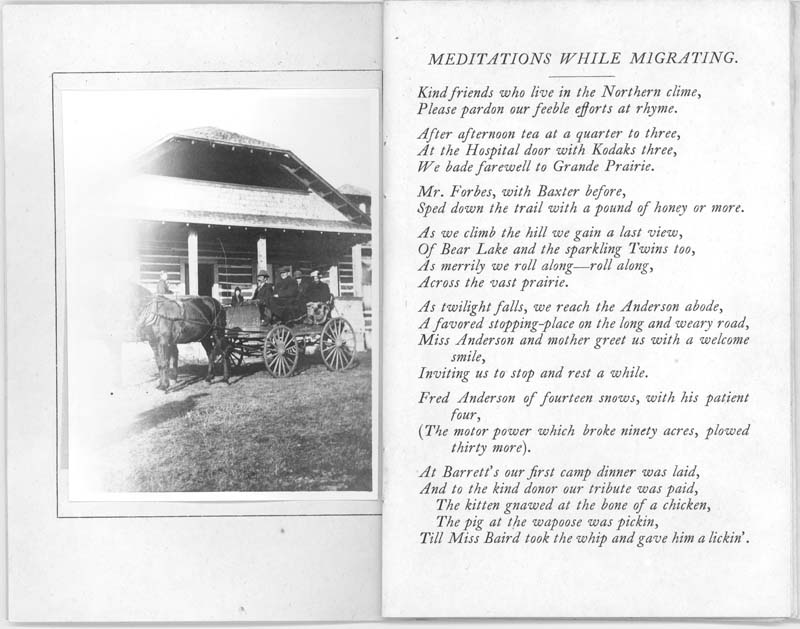 MEDITATIONS WHILE MIGRATING.
Kind friends who live in the Northern clime,
Please pardon our feeble efforts at rhyme.
After afternoon tea at a quarter to three,
At the Hospital door with Kodaks three,
We bade farewell to Grande Prairie.
Mr. Forbes, with Baxter before,
Sped down the trail with a pound of honey or more.
As we climb the hill we gain a last view,
Of Bear Lake and the sparkling Twins too,
As merrily we roll along—roll along,
Across the vast prairie.
As twilight falls, we reach the Anderson abode,
A favored stopping-place on the long and weary road,
Miss Anderson and mother greet us with a welcome
smile,
Inviting us to stop and rest a while.
Fred Anderson of fourteen snows, with his patient
four,
(The motor power which broke ninety acres, plowed
thirty more).
At Barrett's our first camp dinner was laid,
And to the kind donor our tribute was paid,
The kitten gnawed at the bone of a chicken,
The pig at the wapoose was pickin,
Till Miss Baird took the whip and gave him a lickin'.